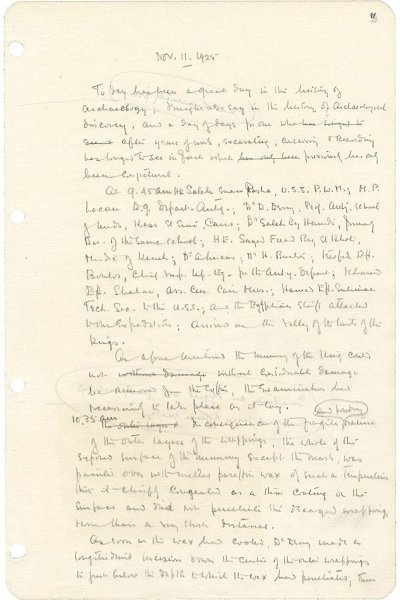 Nov. 11. 1925
To day has been a great day in the history of
archaeology, I might also say in the history of Archaeological
discovery, and a day of days for one who
after years of work, excavating, conserving & recording
has longed to see in fact what previously has only
been conjectural.
At 9.45 am HE Saleh Enan Pasha, U.S.S. P.W.M.; M. P.
Lacau D.G. Depart. Antiq.; Dr D. Derry, Prof. Anat. School
of Meds, Kasr El Aini, Cairo; Dr Saleh Bey Hamdi,
of the same school; HE. Sayed Fuad Bey El Kholi,
Mudir of Keneh; Mr A Lucas; Mr H. Burton; Tewfik Eff.
Boulos, Chief Insp. Up. Eg. for the Antiq. Depart; Mohamed
Eff. Shaban, Ass. Cur. Cair Mus.; Hamed Eff. Suliman
Tech. Sec. to the U.S.S.; and the Egyptian Staff attached
to the Expedition; arrived in the Valley of the tombs of the
Kings.
As afore mentioned the mummy of the King could
not without damage without considerable damage
be removed from the coffin, the examination had
necessarily to take place as it lay.
10.35 am In consequence of the fragile and powdery nature
of the outer layers of the wrappings, the whole of the
exposed surface of the mummy except the mask, was
painted over with melted paraffin wax of such a temperature
that it chiefly congealed as a thin coating on the
surface and did not penetrate the decayed wrappings
more than a very short distance.
As soon as the wax had cooled, Dr Derry made a
longitudinal incision down the centre of the outer wrappings
to just below the depth to which the wax had penetrated, thus